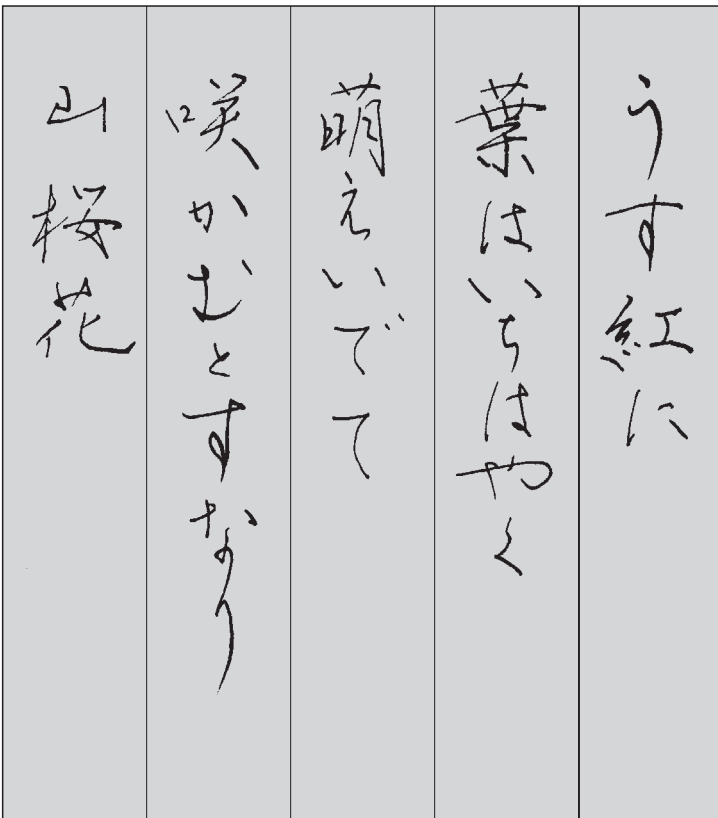 うす紅に
葉はいちはやく
萌えいでて
咲かむとすなり
山桜花